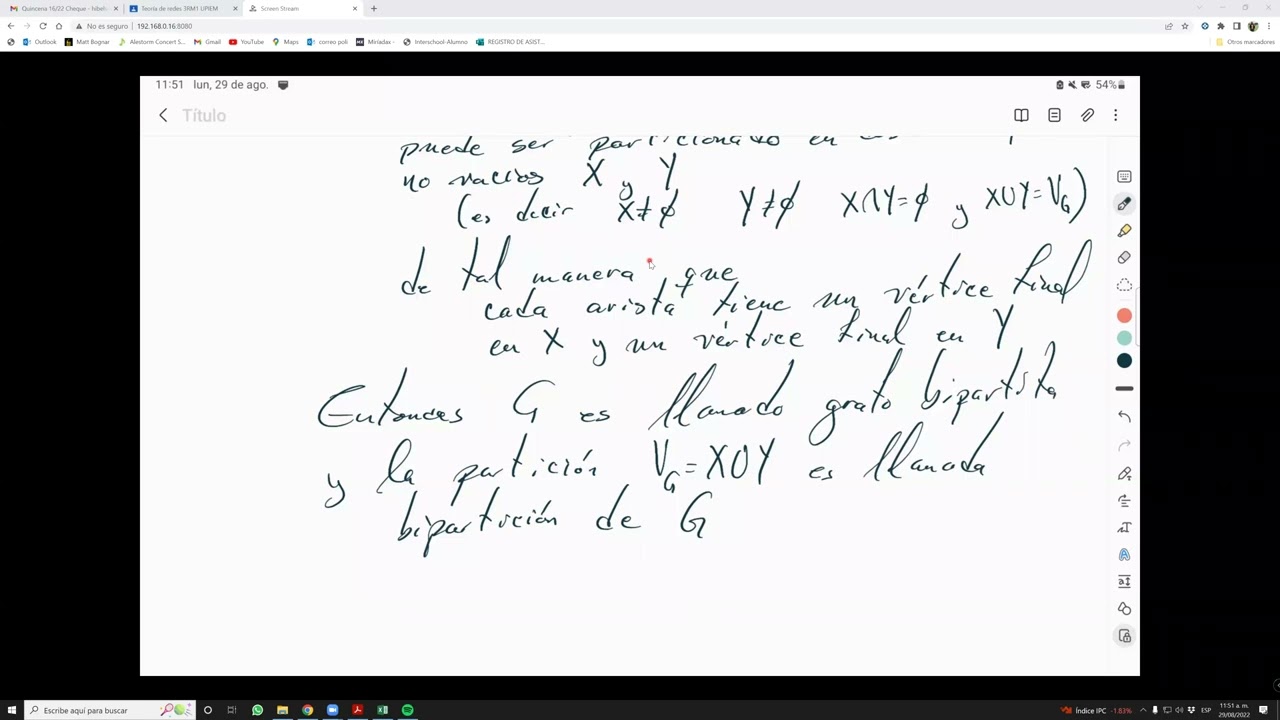 Quincena 16/22 Cheque - hibeh
Teoría de redes 3RM1 UPIEM
Screen Stream
No es seguro | 192.168.0.16:8080
Outlook
Matt Bognar
Alestorm Concert S...
Gmail
YouTube
Maps
correo poli
Miríadax -
Interschool-Alumno
REGISTRO DE ASIST...
Otros marcadores
11:51 lun, 29 de ago.
54%
Título
puede ser particionado en
no vacíos X y Y
(es decir X≠∅ Y≠∅ X∩Y=∅ y X∪Y=V_G)
de tal manera que
cada arista tiene un vértice final
en X y un vértice final en Y
Entonces G es llamado grafo bipartita
y la partición V_G=X∪Y es llamada
bipartición de G
Escribe aquí para buscar
Índice IPC -1.83%
ESP
11:51 a. m.
29/08/2022